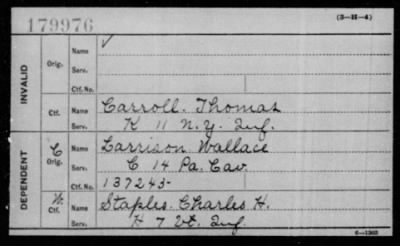 179976
(3-H-4)
INVALID
Orig.
Name
Serv.
Ctf. No.
Ctf.
Name Carroll. Thomas
Serv. K 11 N.Y. Inf.
DEPENDENT
C
Orig.
Name Larrison Wallace
Serv. C 14 Pa. Cav.
Ctf. No. 137245-
Ctf.
Name Staples. Charles H.
Serv. H 7 Vt. Inf.